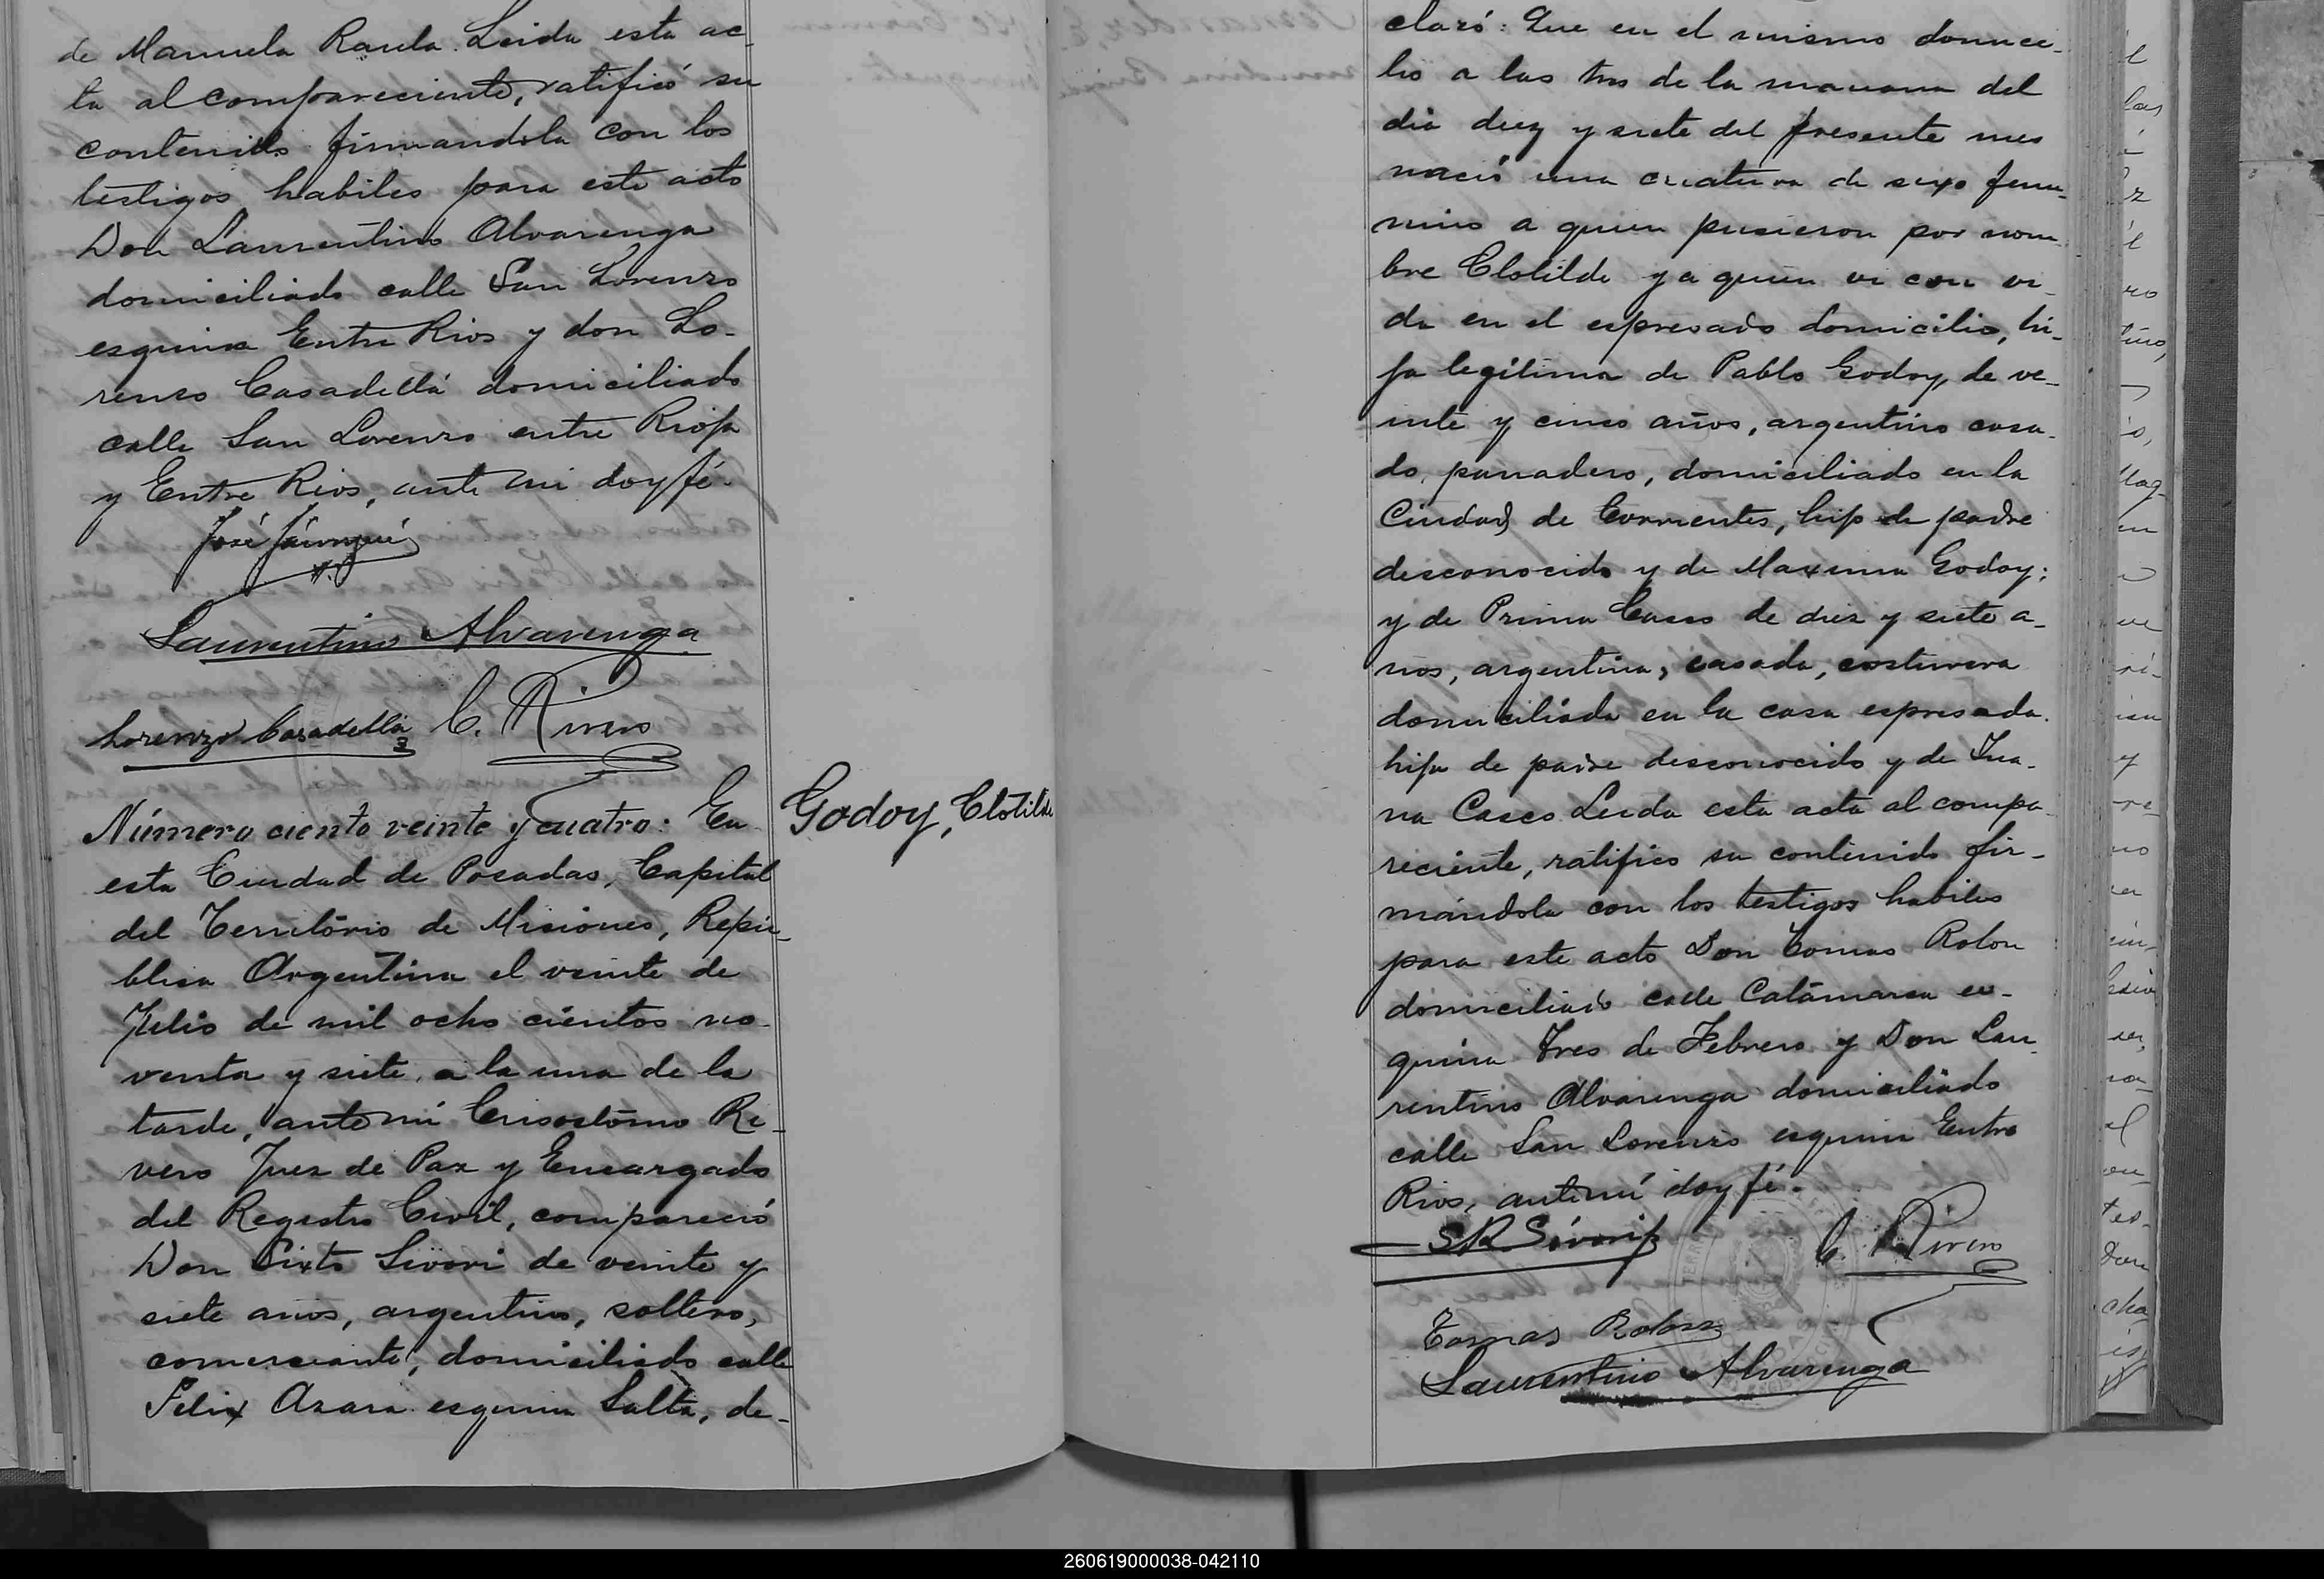 de Manuela Ranla. Leida esta ac-
ta al compareciente, ratificó su
contenido firmandola con los
testigos habiles para este acto
Don Laurentino Alvarenga
domiciliado calle San Lorenzo
esquina Entre Rios y don Lo-
renzo Casadellá domiciliado
calle San Lorenzo entre Rioja
y Entre Rios, ante mi doy fé.
José
Laurentino Alvarenga
Lorenzo Casadellá C. Rivero
Número ciento veinte y cuatro: En
Godoy, Clotilde
esta Ciudad de Posadas, Capital
del Território de Misiones, Repú-
blica Argentina el veinte de
Julio de mil ocho cientos no-
venta y siete, a la una de la
tarde, ante mi Crisostómo Ri-
vero Juez de Paz y Encargado
del Registro Civil, compareció
Don Sixto Sívori de veinte y
siete años, argentino, soltero,
comerciante, domiciliado calle
Felix Azara esquina Salta, de-
claró: Que en el mismo domici-
lio a las tres de la manana del
dia diez y siete del presente mes
nació una criatura de sexo feme-
nino a quien pusieron por nom-
bre Clotilde y a quien vi con vi-
da en el espresado domicilio, hi-
ja legítima de Pablo Godoy, de ve-
inte y cinco años, argentino casa-
do, panadero, domiciliado en la
Ciudad de Corrientes, hijo de padre
desconocido y de Maxima Godoy;
y de Prima Casco de diez y siete a-
nos, argentina, casada, costurera
domiciliada en la casa espresada.
hija de padre desconocido y de Jua-
na Casco. Leida esta acta al compa-
reciente, ratifico su contenido fir-
mándola con los testigos habiles
para este acto Don Tomas Rolon
domiciliado calle Catamarca es-
quina Tres de Febrero y Don Lau-
rentino Alvarenga domiciliado
calle San Lorenzo esquina Entre
Rios, ante mí doy fé.
S.R. Sívori
C. Rivero
Tomas Rolon
Laurentino Alvarenga
260619000038-042110